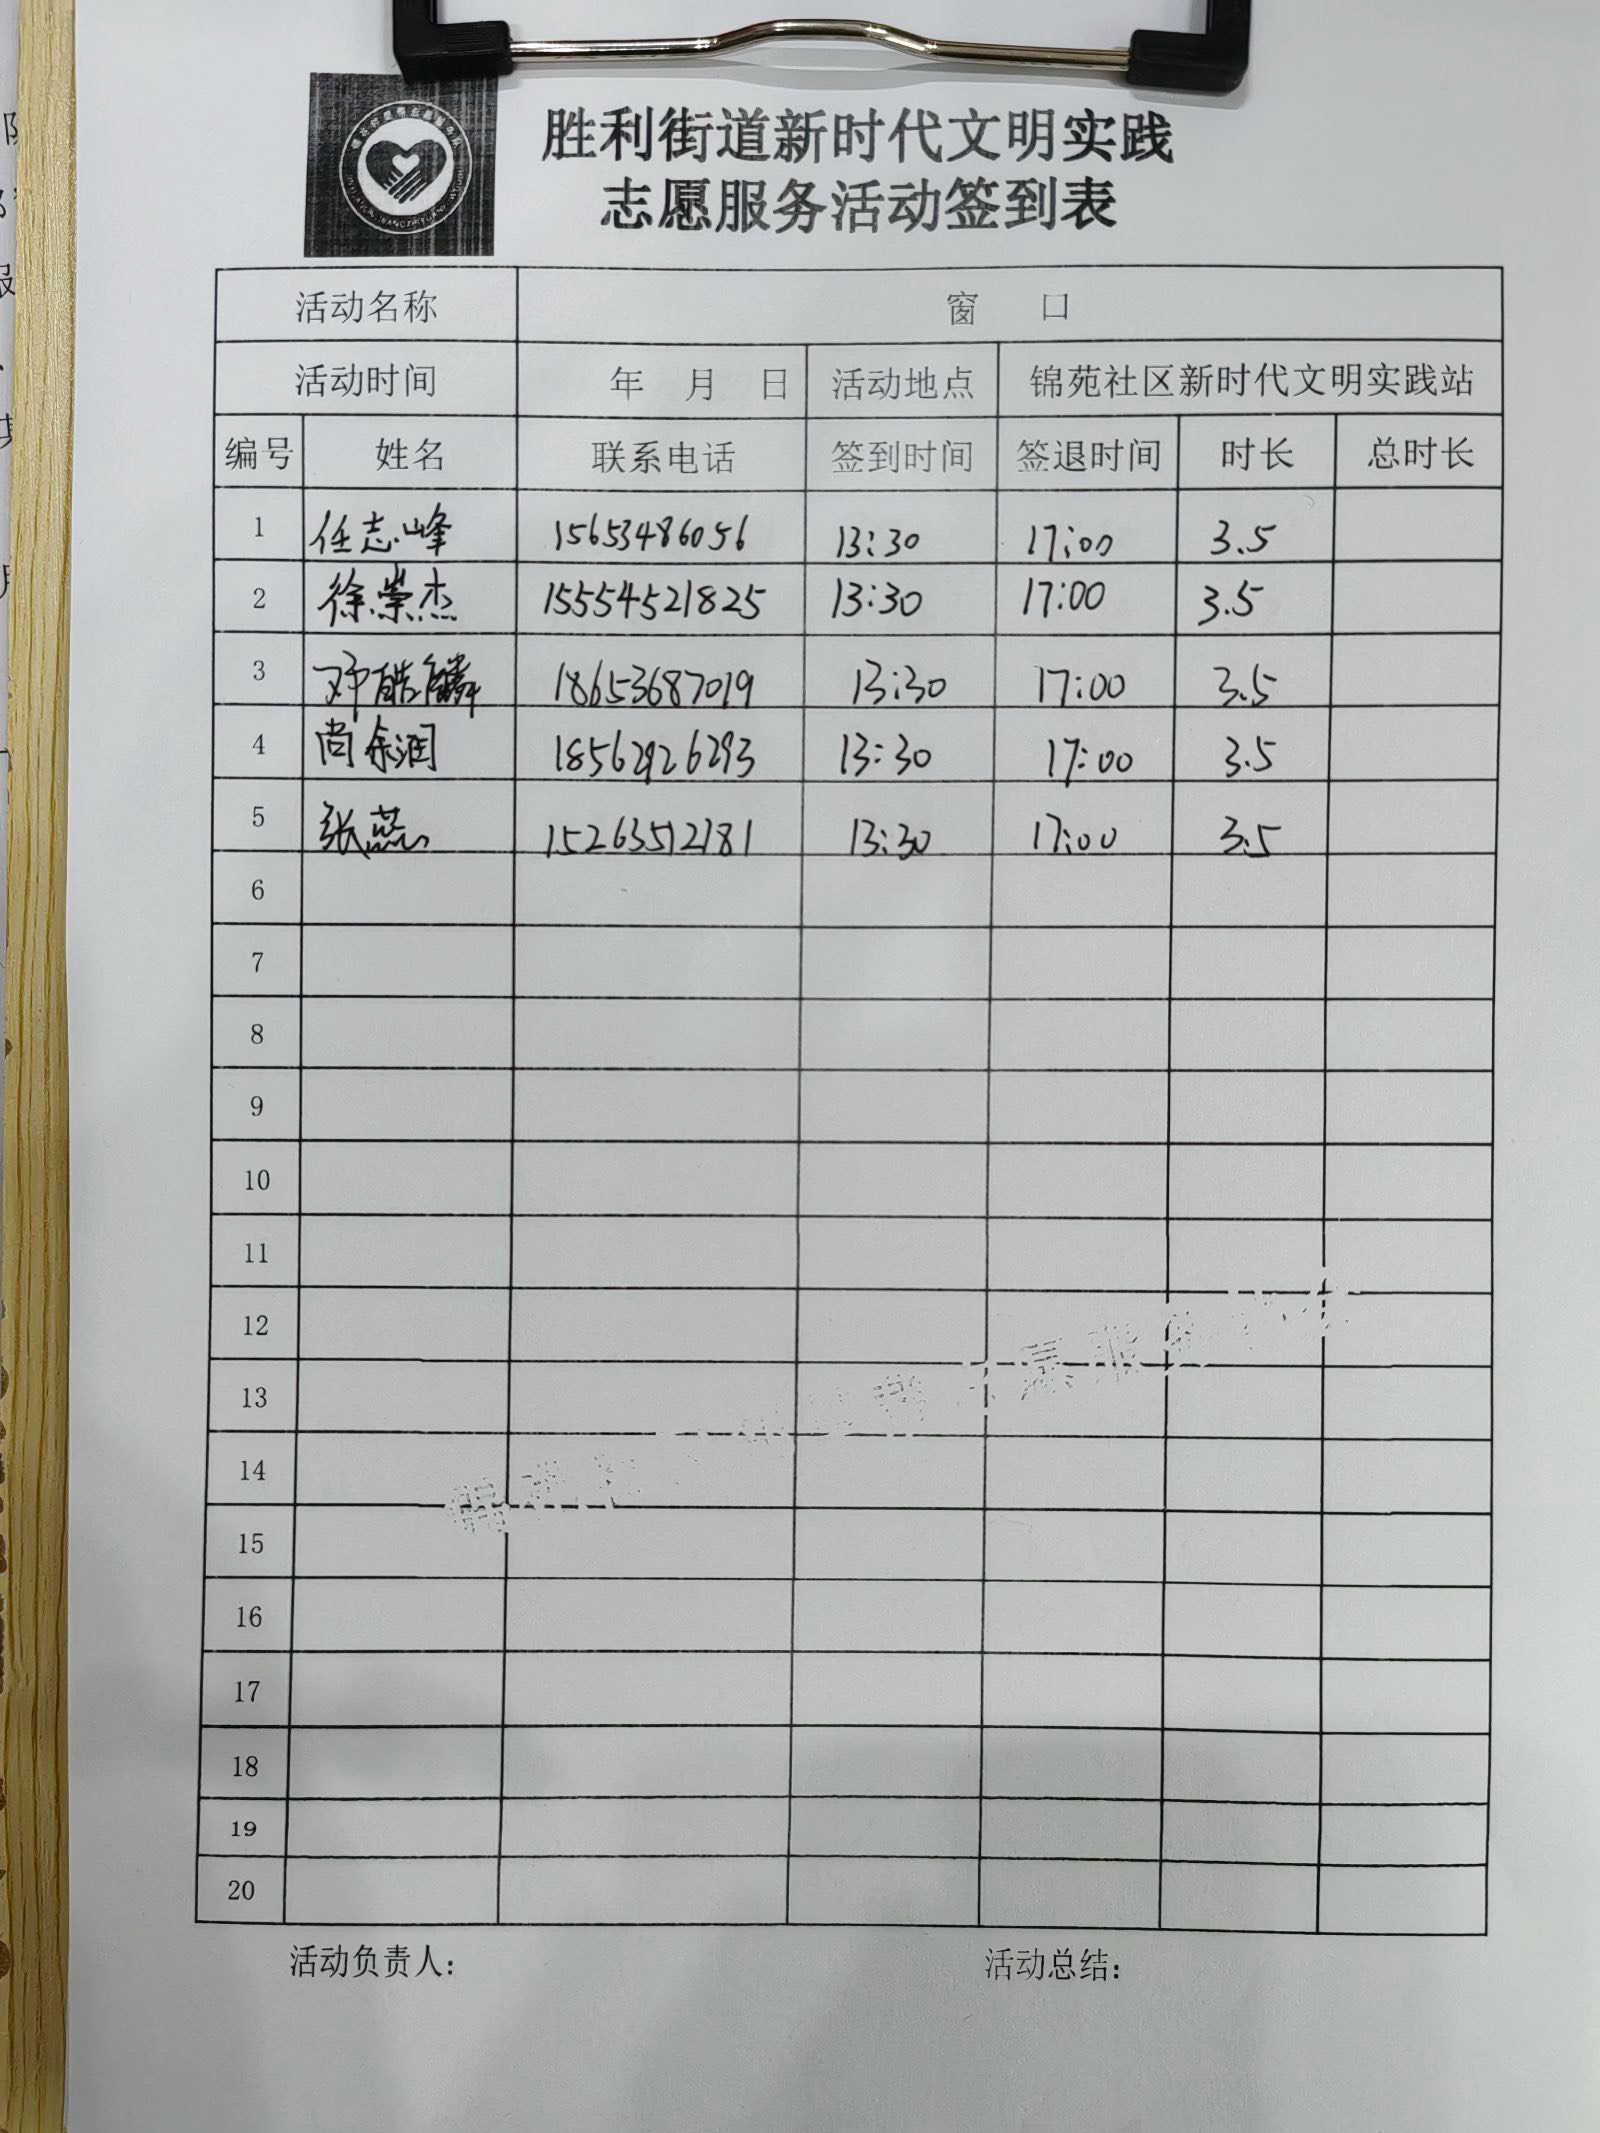 胜利街道新时代文明实践
志愿服务活动签到表
活动名称 窗 口
活动时间 年 月 日 活动地点 锦苑社区新时代文明实践站
编号 姓名 联系电话 签到时间 签退时间 时长 总时长
1 任志峰 15653486056 13:30 17:00 3.5
2 徐崇杰 15554521825 13:30 17:00 3.5
3 邓皓麟 18653687019 13:30 17:00 3.5
4 尚余润 18562926293 13:30 17:00 3.5
5 张蕊 15263512181 13:30 17:00 3.5
6
7
8
9
10
11
12
13
14
15
16
17
18
19
20
活动负责人: 活动总结: